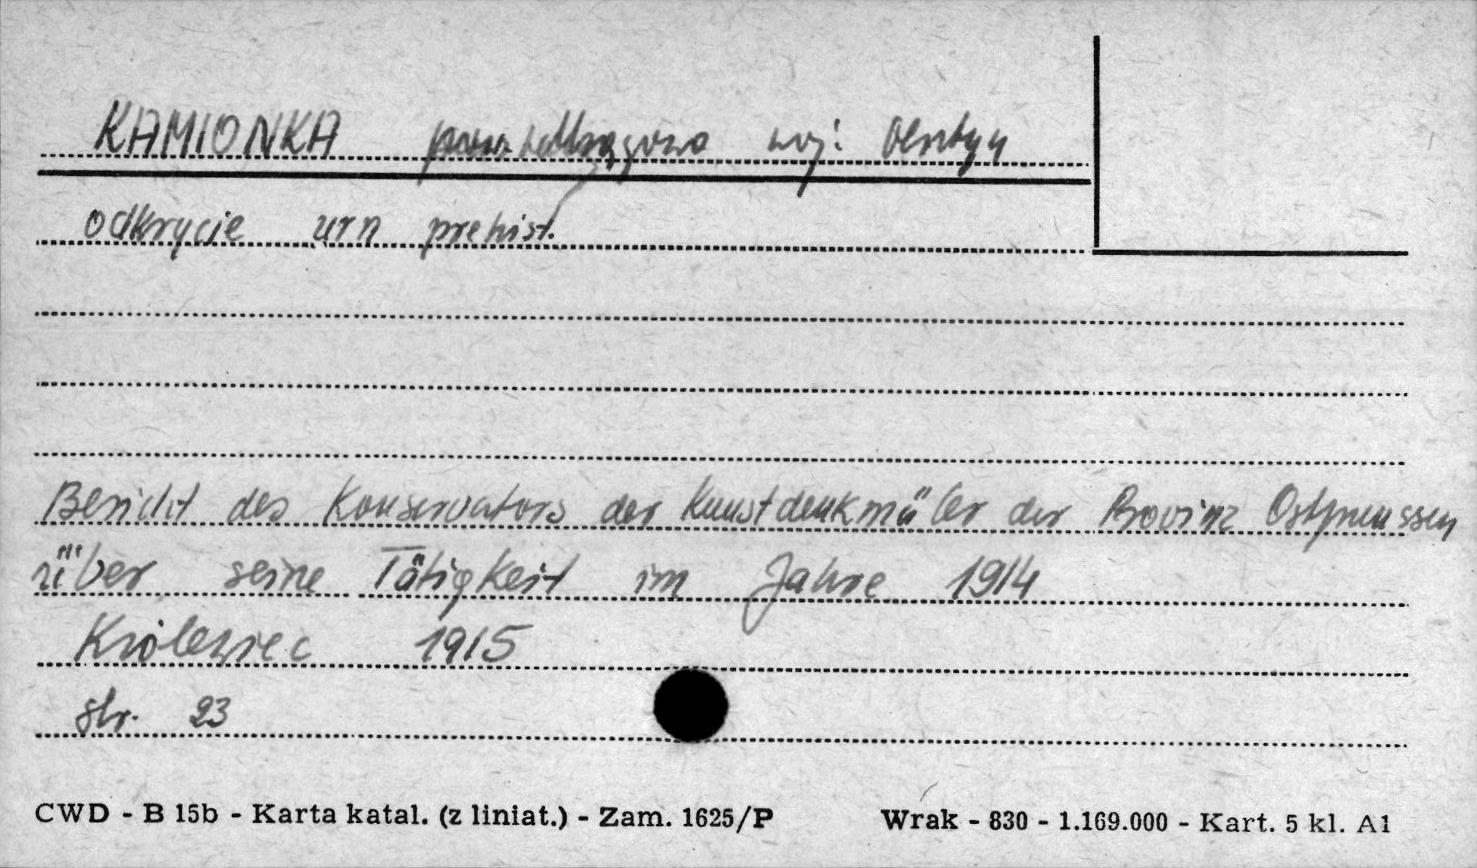 KAMIONKA pow. woj: Olsztyn
odkrycie urn prehist.
Bericht des Konservators der Kunstdenkmäler der Provinz Ostpreussen
über seine Tätigkeit im Jahre 1914
Królewiec 1915
str. 23
CWD - B 15b - Karta katal. (z liniat.) - Zam. 1625/P Wrak - 830 - 1.169.000 - Kart. 5 kl. A1